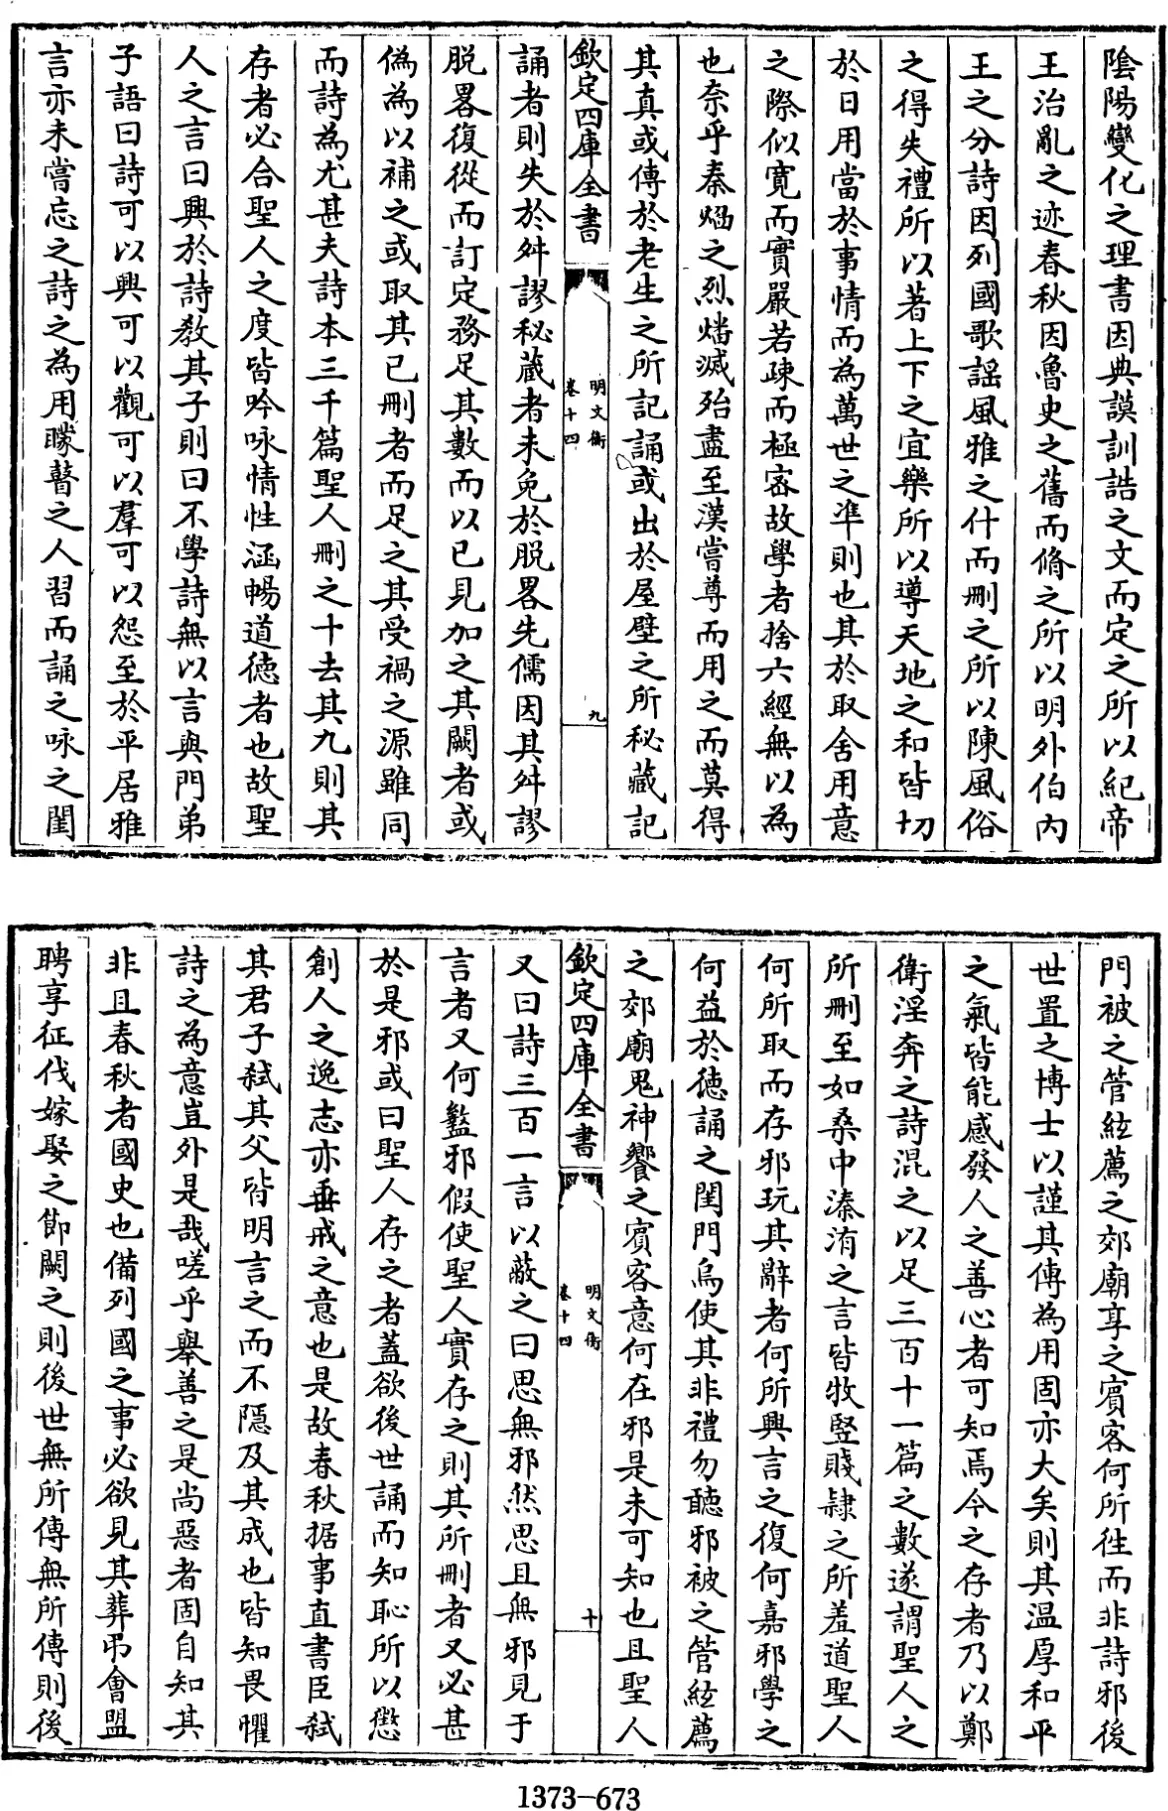 陰陽變化之理書因典謨訓誥之文而定之所以紀帝
王治亂之迹春秋因魯史之舊而脩之所以明外伯内
王之分詩因列國歌謡風雅之什而刪之所以陳風俗
之得失禮所以著上下之宜樂所以導天地之和皆切
於日用當於事情而為萬世之凖則也其於取舍用意
之際似寛而實嚴若疎而極宻故學者捨六經無以為
也奈乎秦焰之烈燔滅殆盡至漢嘗尊而用之而莫得
其真或傳於老生之所記誦或出於屋壁之所秘藏記
欽定四庫全書
明文衡
卷十四
九
誦者則失於舛謬秘蔵者未免於脱畧先儒因其舛謬
脱畧復從而訂定務足其數而以已見加之其闕者或
偽為以補之或取其已刪者而足之其受禍之源雖同
而詩為尤甚夫詩本三千篇聖人刪之十去其九則其
存者必合聖人之度皆吟咏情性涵暢道徳者也故聖
人之言曰興於詩教其子則曰不學詩無以言與門弟
子語曰詩可以興可以觀可以羣可以怨至於平居雅
言亦未嘗忘之詩之為用矇瞽之人習而誦之咏之閨
門被之管絃薦之郊廟享之賓客何所徃而非詩邪後
世置之博士以謹其傳為用固亦大矣則其温厚和平
之氣皆能感發人之善心者可知焉今之存者乃以鄭
衛淫奔之詩混之以足三百十一篇之數遂謂聖人之
所刪至如桑中溱洧之言皆牧豎賤隷之所羞道聖人
何所取而存邪玩其辭者何所興言之復何嘉邪學之
何益於徳誦之閨門烏使其非禮勿聽邪被之管絃薦
之郊廟鬼神饗之賓客意何在邪是未可知也且聖人
欽定四庫全書
明文衡
卷十四
十
又曰詩三百一言以蔽之曰思無邪然思且無邪見于
言者又何蠚邪假使聖人實存之則其所刪者又必甚
於是邪或曰聖人存之者蓋欲後世誦而知恥所以懲
創人之逸志亦垂戒之意也是故春秋据事直書臣弑
其君子弑其父皆明言之而不隱及其成也皆知畏懼
詩之為意豈外是哉嗟乎舉善之是尚惡者固自知其
非且春秋者國史也備列國之事必欲見其葬弔會盟
聘享征伐嫁娶之節闕之則後世無所傳無所傳則後
1373-673